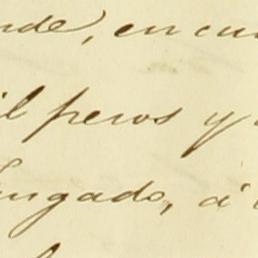 nde, en cu
il pesos y
ngado, á